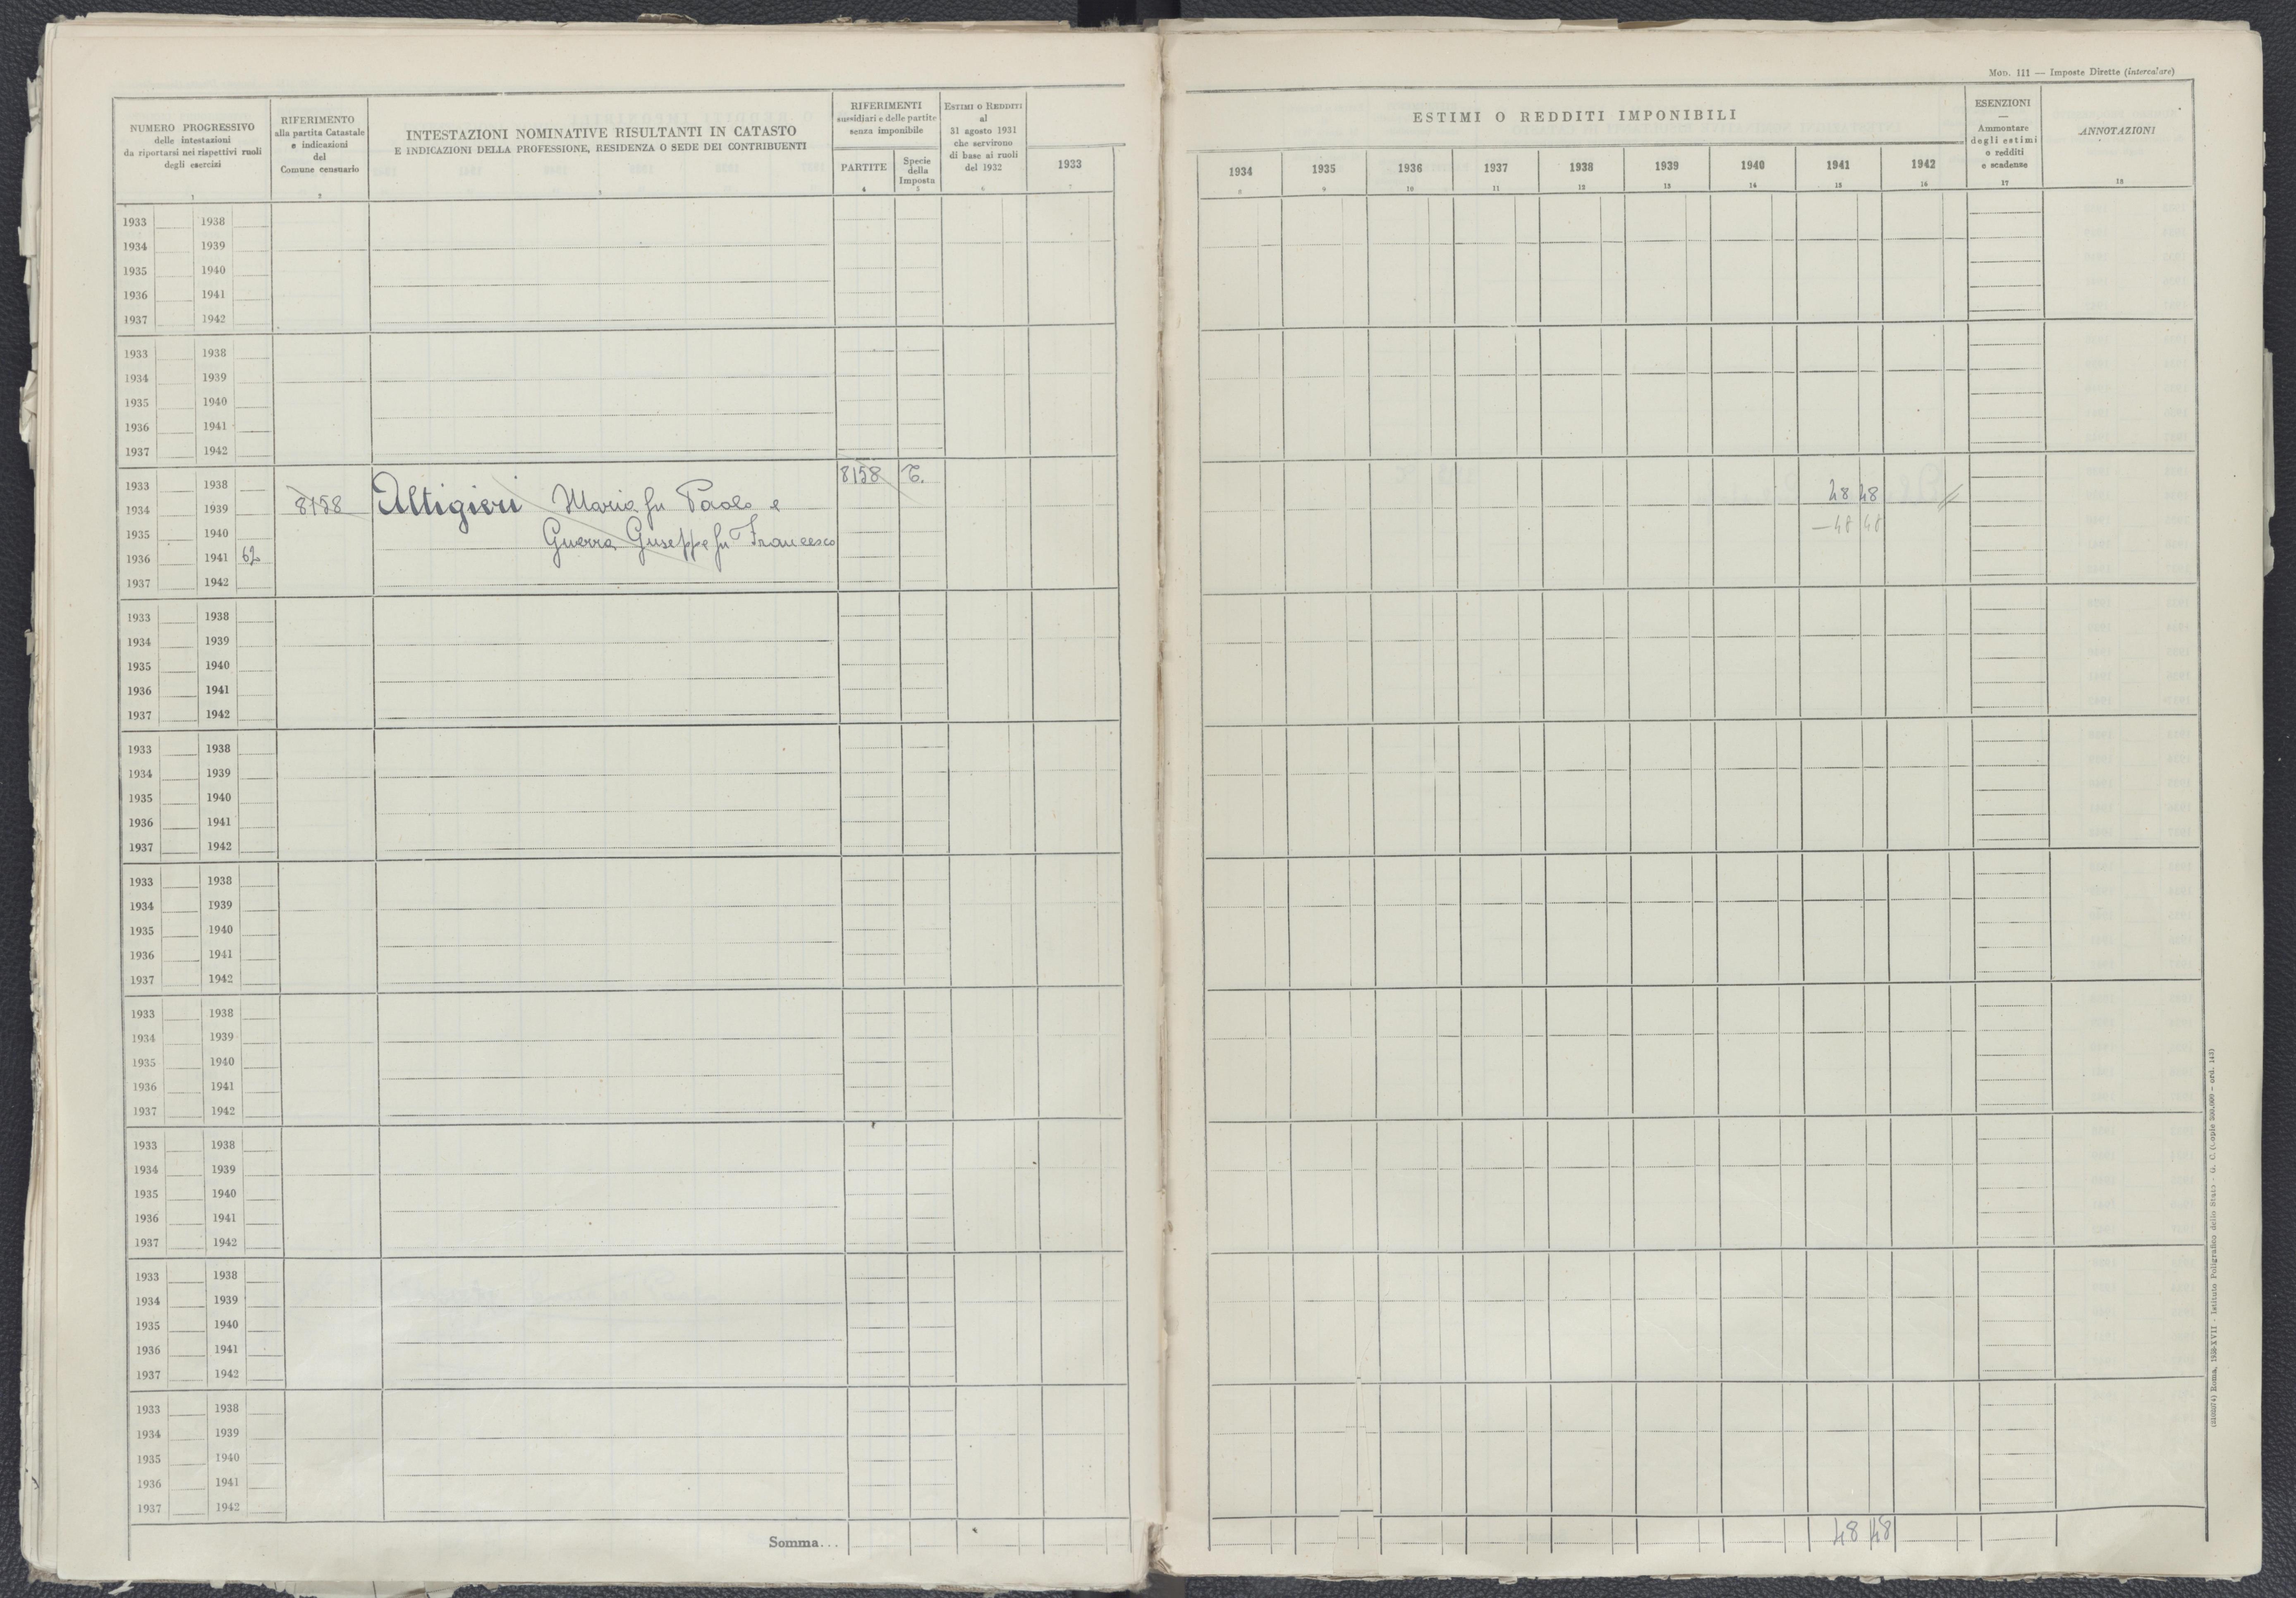 MOD. III — Imposte Dirette (intercalare)
NUMERO PROGRESSIVO
delle intestazioni
da riportarsi nei rispettivi ruoli
degli esercizi
1
RIFERIMENTO
alla partita Catastale
e indicazioni
del
Comune censuario
2
INTESTAZIONI NOMINATIVE RISULTANTI IN CATASTO
E INDICAZIONI DELLA PROFESSIONE, RESIDENZA O SEDE DEI CONTRIBUENTI
3
RIFERIMENTI
sussidiari e delle partite
senza imponibile
PARTITE
4
Specie
della
Imposta
5
ESTIMI O REDDITI
al
31 agosto 1931
che servirono
di base ai ruoli
del 1932
6
1933
7
ESTIMI O REDDITI IMPONIBILI
1934 1935 1936 1937 1938 1939 1940 1941 1942
8 9 10 11 12 13 14 15 16
ESENZIONI
—
Ammontare
degli estimi
o redditi
e scadenze
17
ANNOTAZIONI
18
1933 1938
1934 1939
1935 1940
1936 1941
1937 1942
1933 1938
1934 1939
1935 1940
1936 1941
1937 1942
1933 1938 8158 T.
1934 1939 8158 Altigieri Maria fu Paolo e 48 48
1935 1940 Guerra Giuseppe fu Francesco — 48 48
1936 1941 62
1937 1942
1933 1938
1934 1939
1935 1940
1936 1941
1937 1942
1933 1938
1934 1939
1935 1940
1936 1941
1937 1942
1933 1938
1934 1939
1935 1940
1936 1941
1937 1942
1933 1938
1934 1939
1935 1940
1936 1941
1937 1942
1933 1938
1934 1939
1935 1940
1936 1941
1937 1942
1933 1938
1934 1939
1935 1940
1936 1941
1937 1942
1933 1938
1934 1939
1935 1940
1936 1941
1937 1942
Somma... 48 48
Roma, 1939-XVII - Istituto Poligrafico dello Stato - G. C.